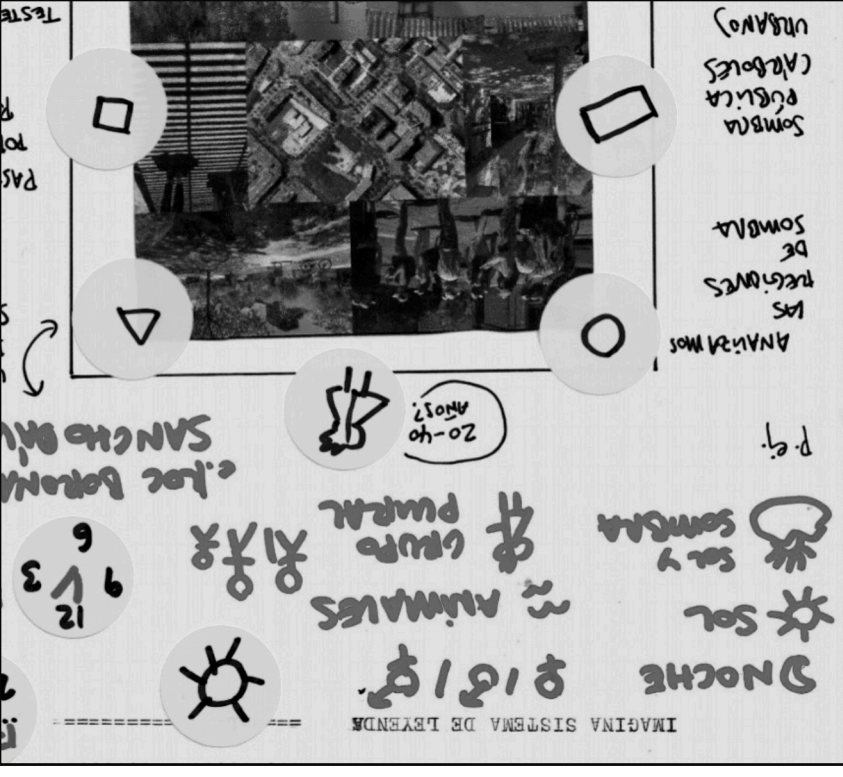 IMAGINA SISTEMA DE LEYENDA
NOCHE
SOL
ANIMALES
SOL Y
SOMBRA
GRUPO
PLURAL
12
9
3
6
C. ROC BORONA
SANCHO DÁV
P.ej.
20-40
AÑOS?
ANALIZAMOS
LAS
REGIONES
DE
SOMBRA
SOMBRA
PÚBLICA
(ÁRBOLES
URBANO)
PAS
TESTE